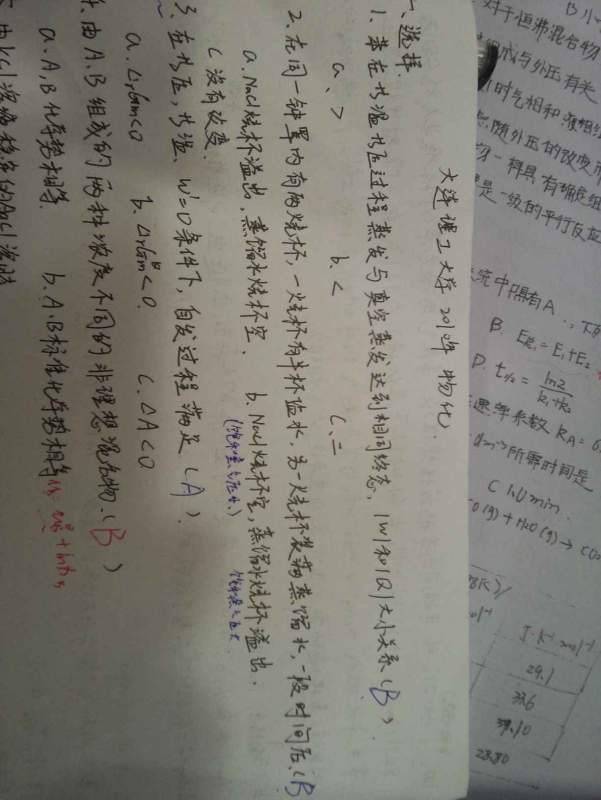 大连理工大学 2012年 物化.
一、选择.
1. 若在书温书压过程蒸发与真空蒸发达到相同终态, |W|和|Q|大小关系(B).
a、> b. < c. =
2. 在同一钟罩内有两烧杯, 一烧杯有半杯盐水, 另一烧杯装满蒸馏水, 一段时间后(B
a. NaCl烧杯溢出, 蒸馏水烧杯空. b. NaCl烧杯空, 蒸馏水烧杯溢出.
c 没有改变.
3. 在书压, 书温、W'=0条件下, 自发过程满足(A).
a. ΔrGm<0 b. ΔrGmθ<0. c. ΔA<0
4. 由A.B组成的两种浓度不同的非理想混合物.(B)
a. A,B化学势相等. b. A.B标准化学势相等
B小
对于恒沸混合物
组成与外压有关
时气相和液相组
随外压的改变而
物一样具有确定组
是一级的平行反应
系统中隔有A
B. E总=E1+E2
D. t1/2 = ln2/k1+k2
速率系数 kA=6.
dm-3所需时间是
C 1.0 min.
CO(g)+H2O(g)→CO2
J·K-1mol-1
29.1
33.6
23.80